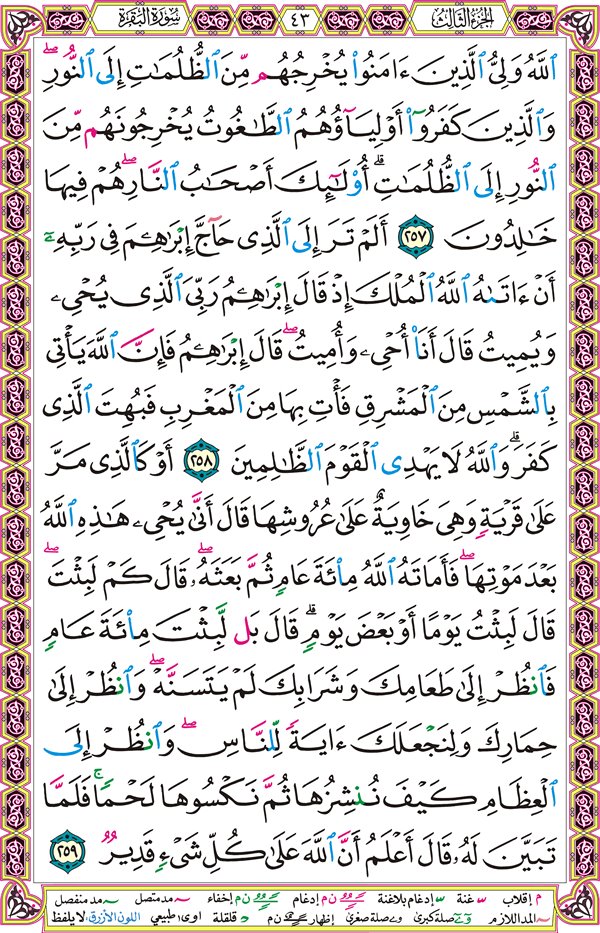 الجزء الثالث ٤٣ سورة البقرة
ٱللَّهُ وَلِيُّ ٱلَّذِينَ ءَامَنُوا۟ يُخْرِجُهُم مِّنَ ٱلظُّلُمَـٰتِ إِلَى ٱلنُّورِ ۖ
وَٱلَّذِينَ كَفَرُوٓا۟ أَوْلِيَآؤُهُمُ ٱلطَّـٰغُوتُ يُخْرِجُونَهُم مِّنَ
ٱلنُّورِ إِلَى ٱلظُّلُمَـٰتِ ۗ أُو۟لَـٰٓئِكَ أَصْحَـٰبُ ٱلنَّارِ ۖ هُمْ فِيهَا
خَـٰلِدُونَ ٢٥٧ أَلَمْ تَرَ إِلَى ٱلَّذِى حَآجَّ إِبْرَٰهِـۧمَ فِى رَبِّهِۦٓ
أَنْ ءَاتَىٰهُ ٱللَّهُ ٱلْمُلْكَ إِذْ قَالَ إِبْرَٰهِـۧمُ رَبِّىَ ٱلَّذِى يُحْىِۦ
وَيُمِيتُ قَالَ أَنَا۠ أُحْىِۦ وَأُمِيتُ ۖ قَالَ إِبْرَٰهِـۧمُ فَإِنَّ ٱللَّهَ يَأْتِى
بِٱلشَّمْسِ مِنَ ٱلْمَشْرِقِ فَأْتِ بِهَا مِنَ ٱلْمَغْرِبِ فَبُهِتَ ٱلَّذِى
كَفَرَ ۗ وَٱللَّهُ لَا يَهْدِى ٱلْقَوْمَ ٱلظَّـٰلِمِينَ ٢٥٨ أَوْ كَٱلَّذِى مَرَّ
عَلَىٰ قَرْيَةٍ وَهِىَ خَاوِيَةٌ عَلَىٰ عُرُوشِهَا قَالَ أَنَّىٰ يُحْىِۦ هَـٰذِهِ ٱللَّهُ
بَعْدَ مَوْتِهَا ۖ فَأَمَاتَهُ ٱللَّهُ مِا۟ئَةَ عَامٍ ثُمَّ بَعَثَهُۥ ۖ قَالَ كَمْ لَبِثْتَ ۖ
قَالَ لَبِثْتُ يَوْمًا أَوْ بَعْضَ يَوْمٍ ۖ قَالَ بَل لَّبِثْتَ مِا۟ئَةَ عَامٍ
فَٱنظُرْ إِلَىٰ طَعَامِكَ وَشَرَابِكَ لَمْ يَتَسَنَّهْ ۖ وَٱنظُرْ إِلَىٰ
حِمَارِكَ وَلِنَجْعَلَكَ ءَايَةً لِّلنَّاسِ ۖ وَٱنظُرْ إِلَى
ٱلْعِظَامِ كَيْفَ نُنشِزُهَا ثُمَّ نَكْسُوهَا لَحْمًا ۚ فَلَمَّا
تَبَيَّنَ لَهُۥ قَالَ أَعْلَمُ أَنَّ ٱللَّهَ عَلَىٰ كُلِّ شَىْءٍ قَدِيرٌ ٢٥٩
م إقلاب س غنة س إدغام بلاغنة ن م إدغام ن م إخفاء مد متصل مد منفصل
المد اللازم صلة كبرى صلة صغرى إظهار ن م قلقلة اوى: طبيعي اللون الأزرق: لا يلفظ